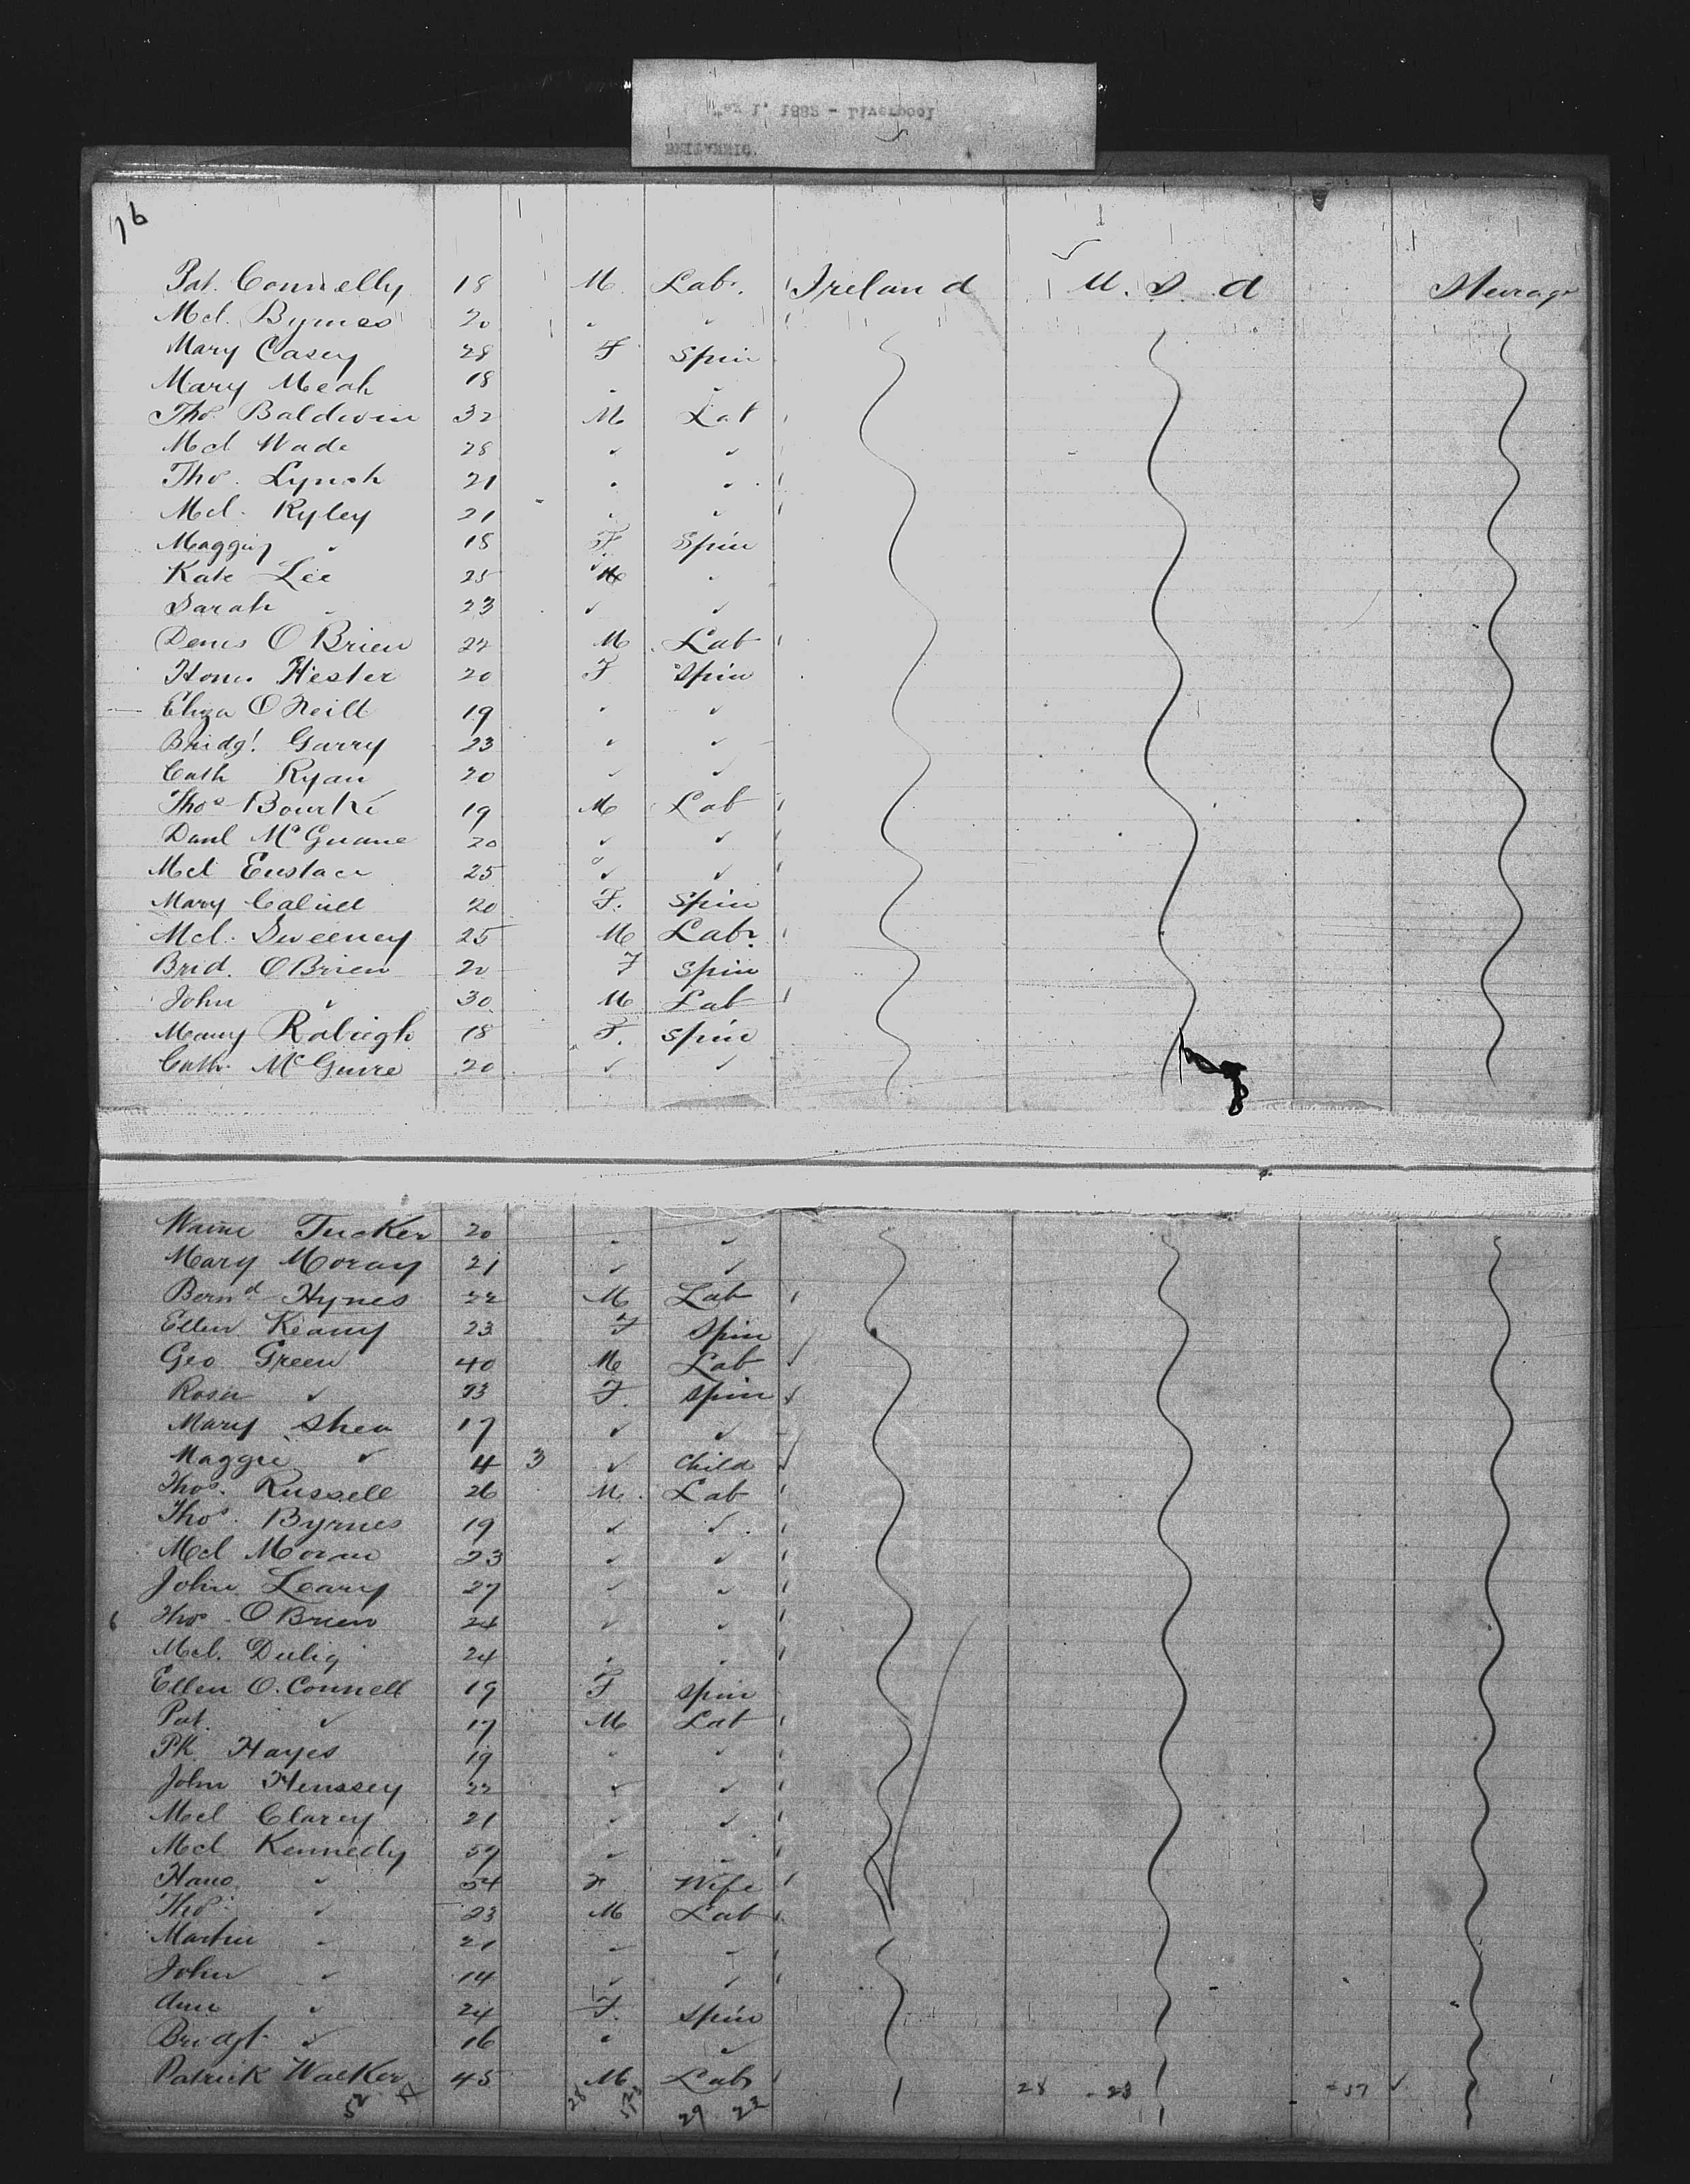 May 1, 1882 - Liverpool
BRITANNIC
76
Pat. Connelly 18 M. Labr. Ireland U. S. a Steerage
Mcl. Byrnes 20 " "
Mary Casey 28 F Spin
Mary Meah 18 " "
Thos. Baldwin 32 M Lab
Mcl Wade 28 " "
Thos. Lynch 21 " "
Mcl. Ryley 21 " "
Maggie " 18 F Spin
Kate Lee 25 " "
Sarah " 23 " "
Denis O Brien 22 M Lab
Hester 20 F Spin
Eliza O Neill 19 " "
Bridgt. Garry 23 " "
Cath Ryan 20 " "
Thos Bourke 19 M Lab
Danl McGuane 20 " "
Mcl Eustace 25 " "
Mary 20 F. Spin
Mcl. Sweeney 25 M Labr.
Brid. O Brien 20 F Spin
John " 30 M Lab
Mary Raleigh 18 F. Spin
Cath. McGuire 20 " "
Tucker 20 " "
Mary Moray 21 " "
Bernd Hynes 22 M Lab
Ellen Keamy 23 F Spin
Geo Green 40 M Lab
Rosie " F. Spin
Mary Shea 17 " "
Maggie " 4 3 " Child
Thos. Russell 26 M. Lab
Thos. Byrnes 19 " "
Mcl Moran 23 " "
John Leary 27 " "
Thos O Brien 24 " "
Mcl. Dulig 24 " "
Ellen O. Connell 19 F Spin
Pat. " 17 M Lab
Pk. Hayes 19 " "
John Henssey 22 " "
Mcl Clarey 21 " "
Mcl Kennedy 59 " "
Hano " 54 F Wife
Thos " 23 M Lab
Martin " 21 " "
John " 14 " "
Ann " 24 F. Spin
Bridgt. " 16 " "
Patrick Walker 45 M Labr
52 28 29 22 28 23 57